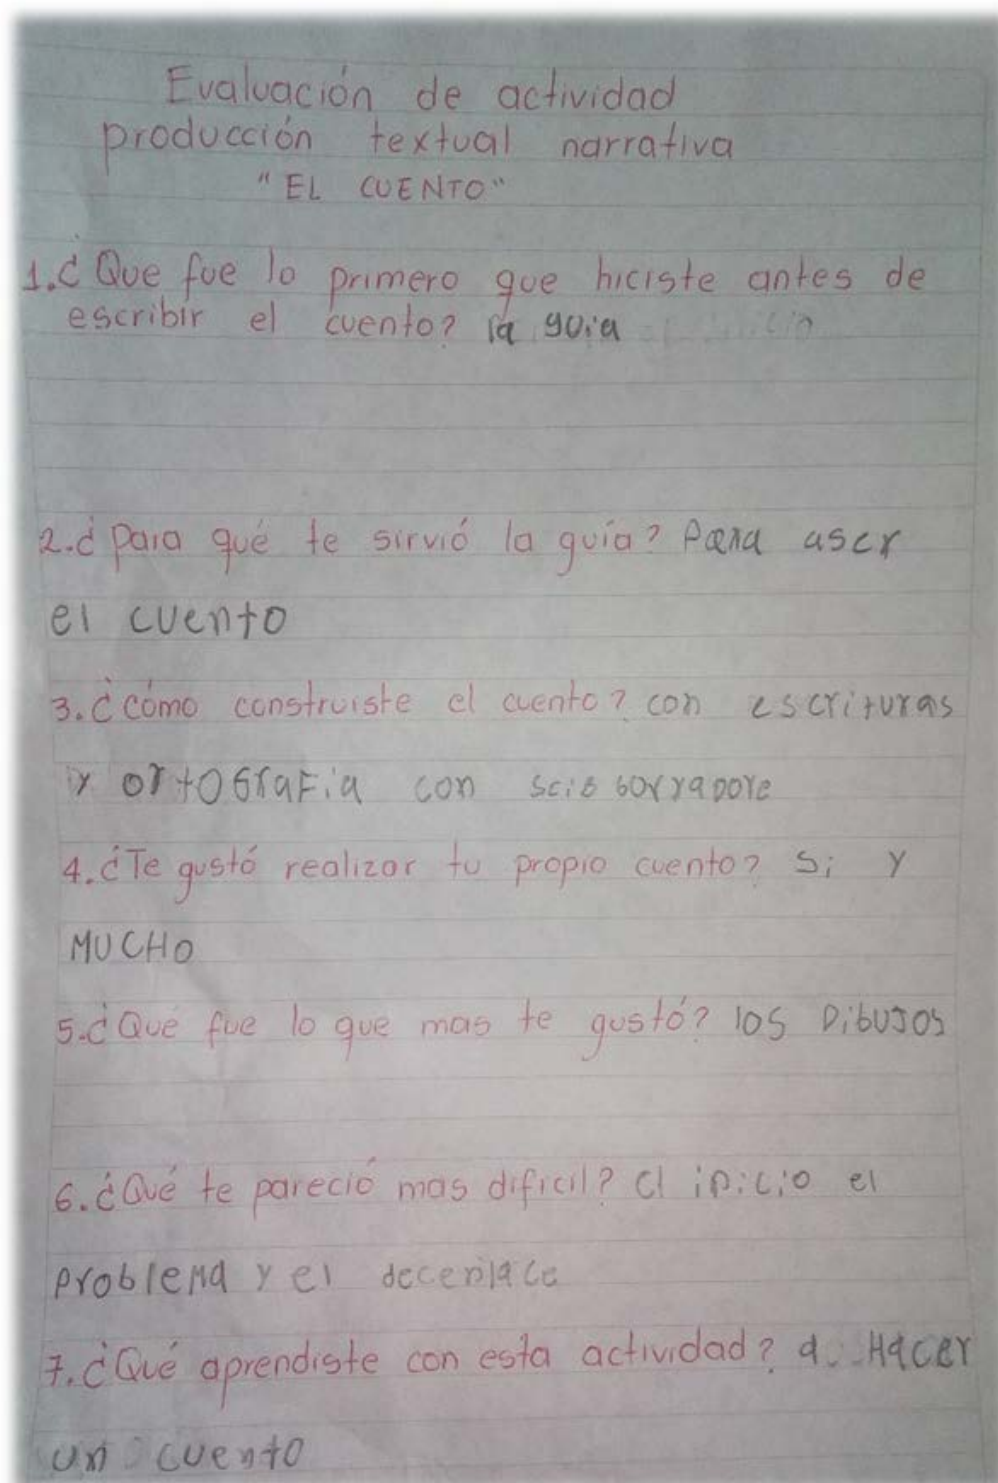 Evaluación de actividad
producción textual narrativa
"EL CUENTO"
1. ¿Que fue lo primero que hiciste antes de
escribir el cuento? la guia
2. ¿Para qué te sirvió la guía? Para aser
el cuento
3. ¿cómo construiste el cuento? con escrituras
y ortografia con
4. ¿Te gustó realizar tu propio cuento? si y
MUCHO
5. ¿Qué fue lo que mas te gustó? los DibuJos
6. ¿Qué te pareció mas dificil? el inicio el
problema y el decenlace
7. ¿Qué aprendiste con esta actividad? a Hacer
un cuento